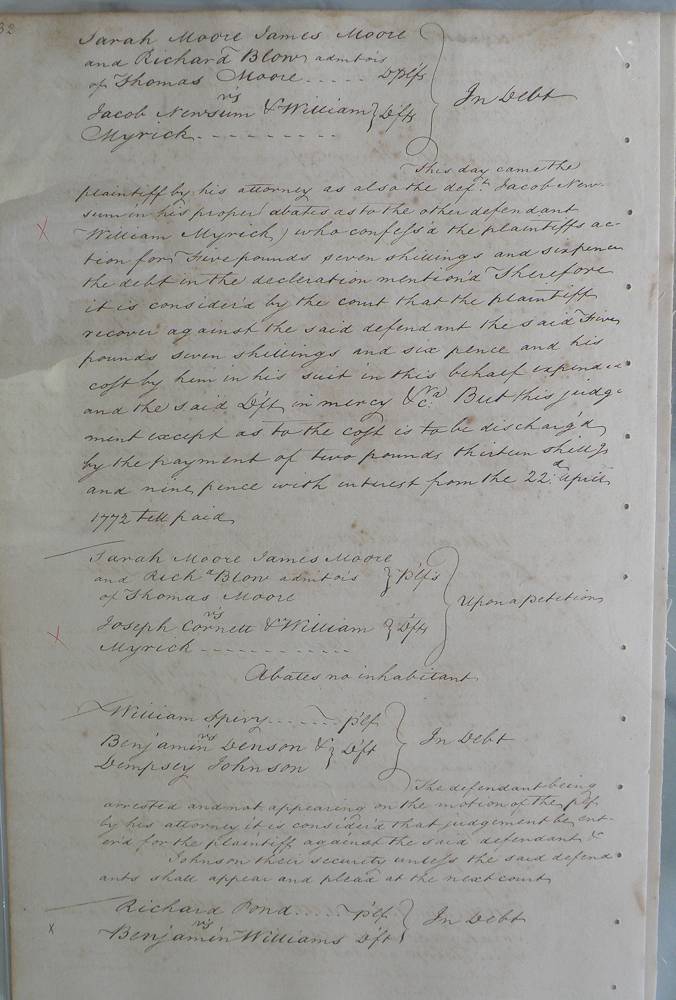 32
Sarah Moore James Moore
and Richard Blow admtois
of Thomas Moore ..... Plfs
vs
Jacob Newsum & William } Dfts
Myrick - - - - - - - - -
In Debt
This day came the
plaintiff by his attorney as also the deft. Jacob New-
sum in his proper (abates as to the other defendant
William Myrick) who confess'd the plaintiffs ac-
tion for Five pounds seven shillings and sixpence
the debt in the decleration mention'd Therefore
it is consider'd by the court that the plaintiff
recover against the said defendant the said Five
pounds seven shillings and six pence and his
cost by him in his suit in this behalf expended
and the said Dft in mercy &c. But this judge-
ment except as to the cost is to be discharg'd
by the payment of two pounds thirteen shillgs
and nine pence with interest from the 22.d April
1772 till paid
Sarah Moore James Moore
and Richd Blow admtois } Plfs
of Thomas Moore
vs
Joseph Cornett & William } Dfts
Myrick - - - - - - - - - - - -
Upon a petition
Abates no inhabitant
William Spivy ...... plf
vs
Benjamin Denson & } Dft
Dempsey Johnson
In Debt
The defendant being
arrested and not appearing on the motion of the plf
by his attorney it is consider'd that judgement be ent-
er'd for the plaintiff against the said defendant &
Johnson their security unless the said defend-
ants shall appear and plead at the next court
Richard Pond ..... plf
vs
Benjamin Williams Dft
In Debt